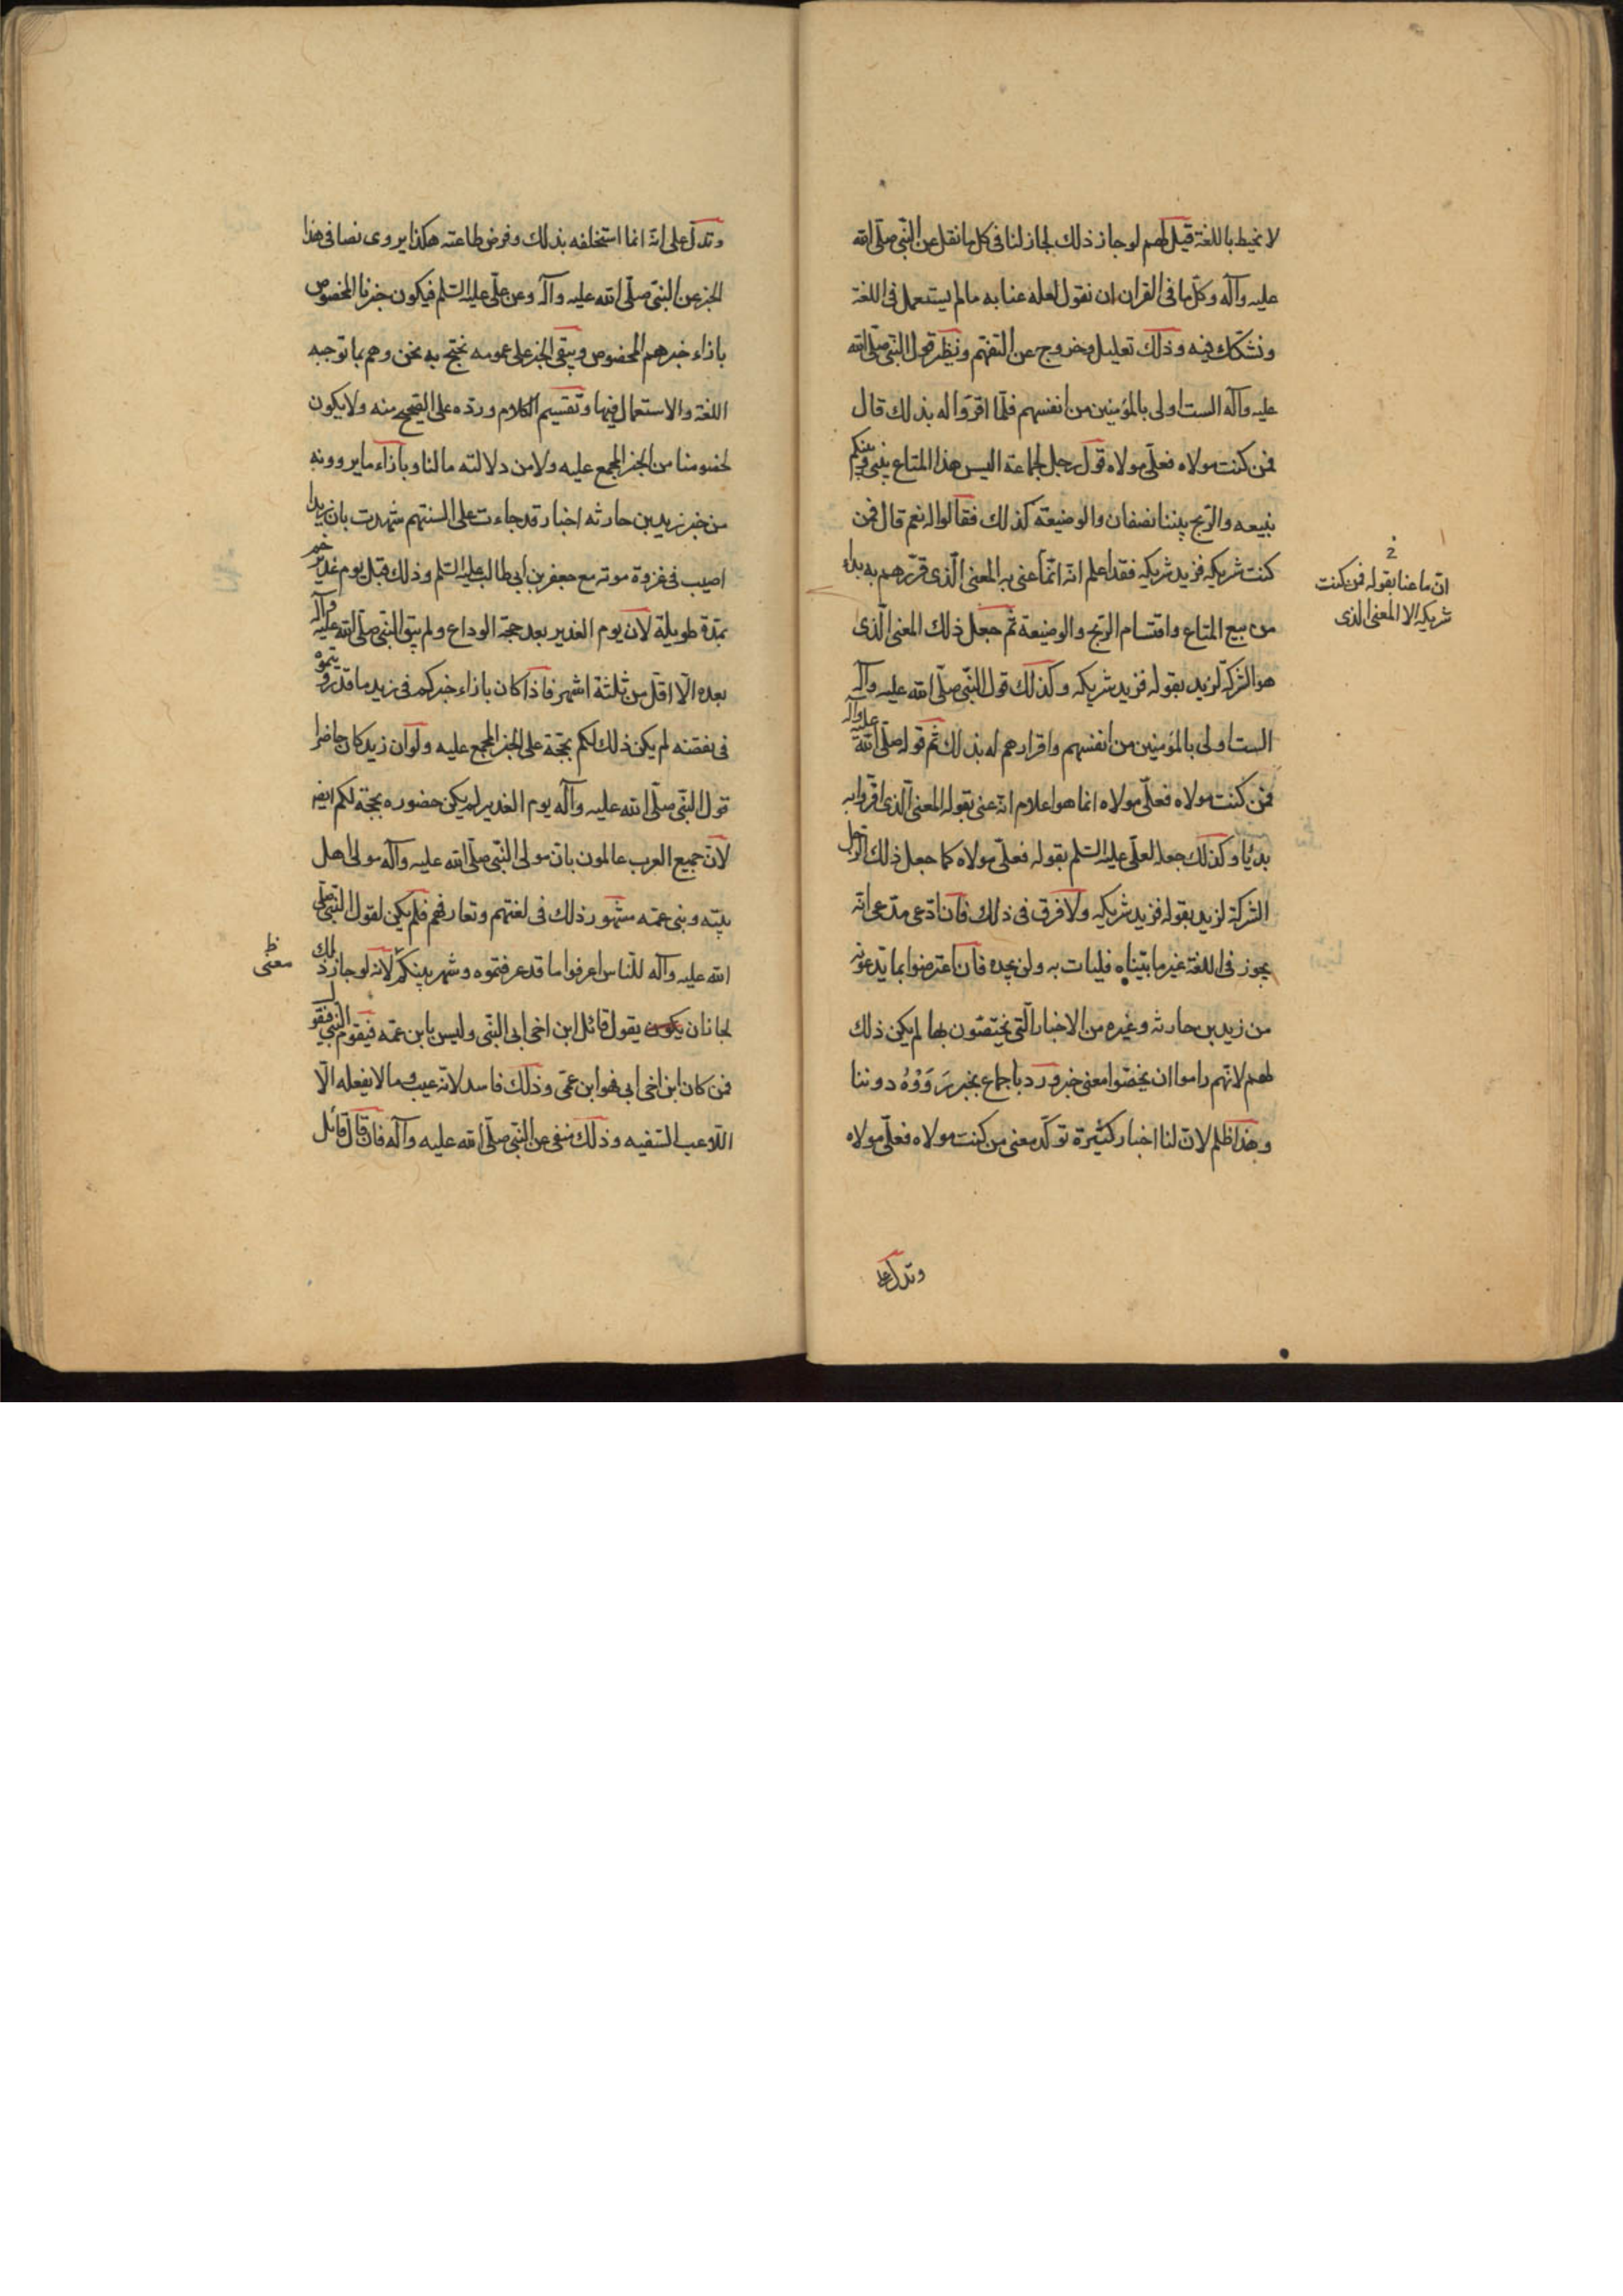 لا نحيط باللغة قيل لهم لو جاز ذلك لجاز لنا فى كل ما نقل عن النبى صلى الله
عليه وآله وكل ما فى القران ان نقول لعله عنا به ما لم يستعمل فى اللغة
ونشكك فيه وذلك تعليل وخروج عن التفهم ونظير قول النبى صلى الله
عليه وآله الست اولى بالمؤمنين من انفسهم فلما اقروا له بذلك قال
فمن كنت مولاه فعلى مولاه قول رجل لجماعة اليس هذا المتاع بينى وبينكم
نبيعه والربح بيننا نصفان والوضيعة كذلك فقالوا له نعم قال فمن
كنت شريكه فزيد شريكه فقد اعلم انه انما عنى به المعنى الذى قررهم به بداء
ان ما عنا بقوله فمن كنت
شريكه الا المعنى الذى
من بيع المتاع واقتسام الربح والوضيعة ثم جعل ذلك المعنى الذى
هو الشركة لزيد بقوله فزيد شريكه وكذلك قول النبى صلى الله عليه وآله
الست اولى بالمؤمنين من انفسهم واقرارهم له بذلك ثم قوله صلى الله عليه وآله
فمن كنت مولاه فعلى مولاه انما هو اعلام انه عنى بقوله المعنى الذى اقروا به
بديا وكذلك جعله لعلى عليه السلم بقوله فعلى مولاه كما جعل ذلك الرجل
الشركة لزيد بقوله فزيد شريكه ولا فرق فى ذلك فان ادعى مدعى انه
يجوز فى اللغة غير ما بيناه فليات به ولن يجده فان اعترضوا بما يدعونه
من زيد بن حارثه وغيره من الاخبار التى يختصون بها لم يكن ذلك
لهم لانهم راموا ان يخصوا معنى خبر ورد باجماع بخبر رَوَوْهُ دوننا
وهذا ظلم لان لنا اخبار كثيرة توكد معنى من كنت مولاه فعلى مولاه
وتدل على
وتدل على انه انما استخلفه بذلك وفرض طاعته هكذا يروى نصا فى هذا
الخبر عن النبى صلى الله عليه وآله وعن على عليه السلم فيكون خبرنا المخصوص
بازاء خبرهم المخصوص ويبقى الخبر على عمومه نحتج به نحن وهم بما توجبه
اللغة والاستعمال فيها وتقسيم الكلام ورده على الصحيح منه ولا يكون
لخصومنا من الخبر المجمع عليه ولا من دلالته ما لنا وبازاء ما يروونه
من خبر زيد بن حارثه اخبار قد جاءت على السنتهم شهدت بان زيدا
اصيب فى غزوة موته مع جعفر بن ابى طالب عليه السلم وذلك قبل يوم غدير خم
بمدة طويلة لان يوم الغدير بعد حجة الوداع ولم يبق النبى صلى الله عليه وآله
بعده الا اقل من ثلثة اشهر فاذا كان بازاء خبركم فى زيد ما قد رويتموه
فى نقضه لم يكن ذلك لكم بحجة على الخبر المجمع عليه ولو ان زيد كان حاضرا
قول النبى صلى الله عليه وآله يوم الغدير لم يكن حضوره بحجة لكم ايضا
لان جميع العرب عالمون بان مولى النبى صلى الله عليه وآله مولى اهل
بيته وبنى عمه مشهور ذلك فى لغتهم وتعارفهم فلم يكن لقول النبى صلى
الله عليه وآله للناس اعرفوا ما قد عرفتموه وشهر بينكم لانه لو جاز ذلك
معنى ظ
لجاز ان يقول قائل ابن اخى ابى النبى وليس بابن عمه فيقوم النبى فيقول
فمن كان ابن اخى ابى فهو ابن عمى وذلك فاسد لانه عيب وما لا يفعله الا
اللاعب السفيه وذلك منفى عن النبى صلى الله عليه وآله فان قال قائل